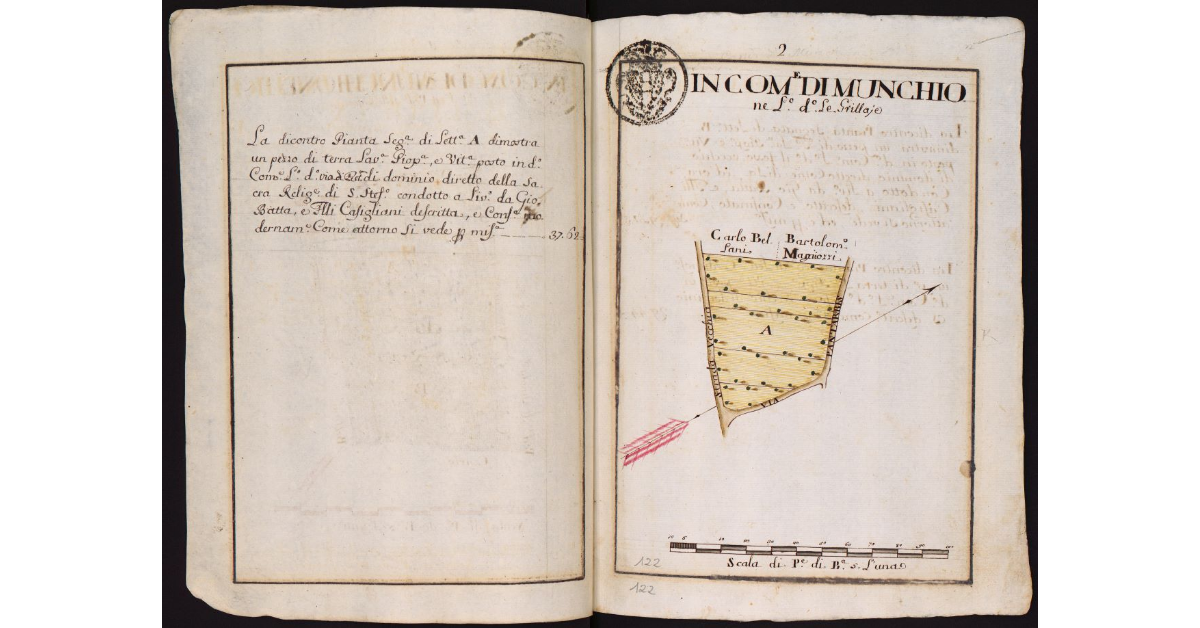 La dicontro Pianta Seg.ᵃ di Lett.ᵃ A dimostra
un pezzo di terra Lav.ᵃ Piop.ᵃ, e Vit.ᵃ posto in d.ᵒ
Com.ᵉ L.ᵒ d.ᵒ di dominio diretto della Sa-
cra Relig.ᵉ di S. Stef.ᵒ condotto a Liv.ᵒ da Gio.
Batta, e Flli Casigliani descritta, e Conf.ᵃ mo
dernam.ᵉ Come attorno si vede p mis.ᵃ 37.62
2
IN COM.ᴱ DI MUNCHIO
ne L.ᵒ d.ᵒ Le Grillaje
Carlo Bel
lani
Bartolom.ᵒ
Magnozzi
A
Strada Vecchia
VIA
Scala di P.ᵉ di B.ᵃ 5. L'una
122
122